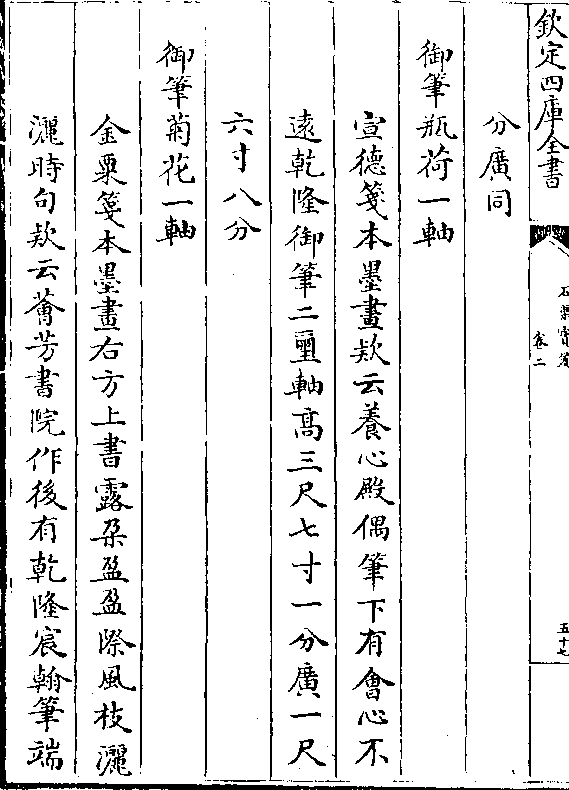 欽定四庫全書
石渠寶笈
卷二
五十七
分廣同
御筆瓶荷一軸
宣德箋本墨畫欵云養心殿偶筆下有會心不
遠乾隆御筆二璽軸高三尺七寸一分廣一尺
六寸八分
御筆菊花一軸
金粟箋本墨畫右方上書露朶盈盈際風枝灑
灑時句欵云薈芳書院作後有乾隆宸翰筆端